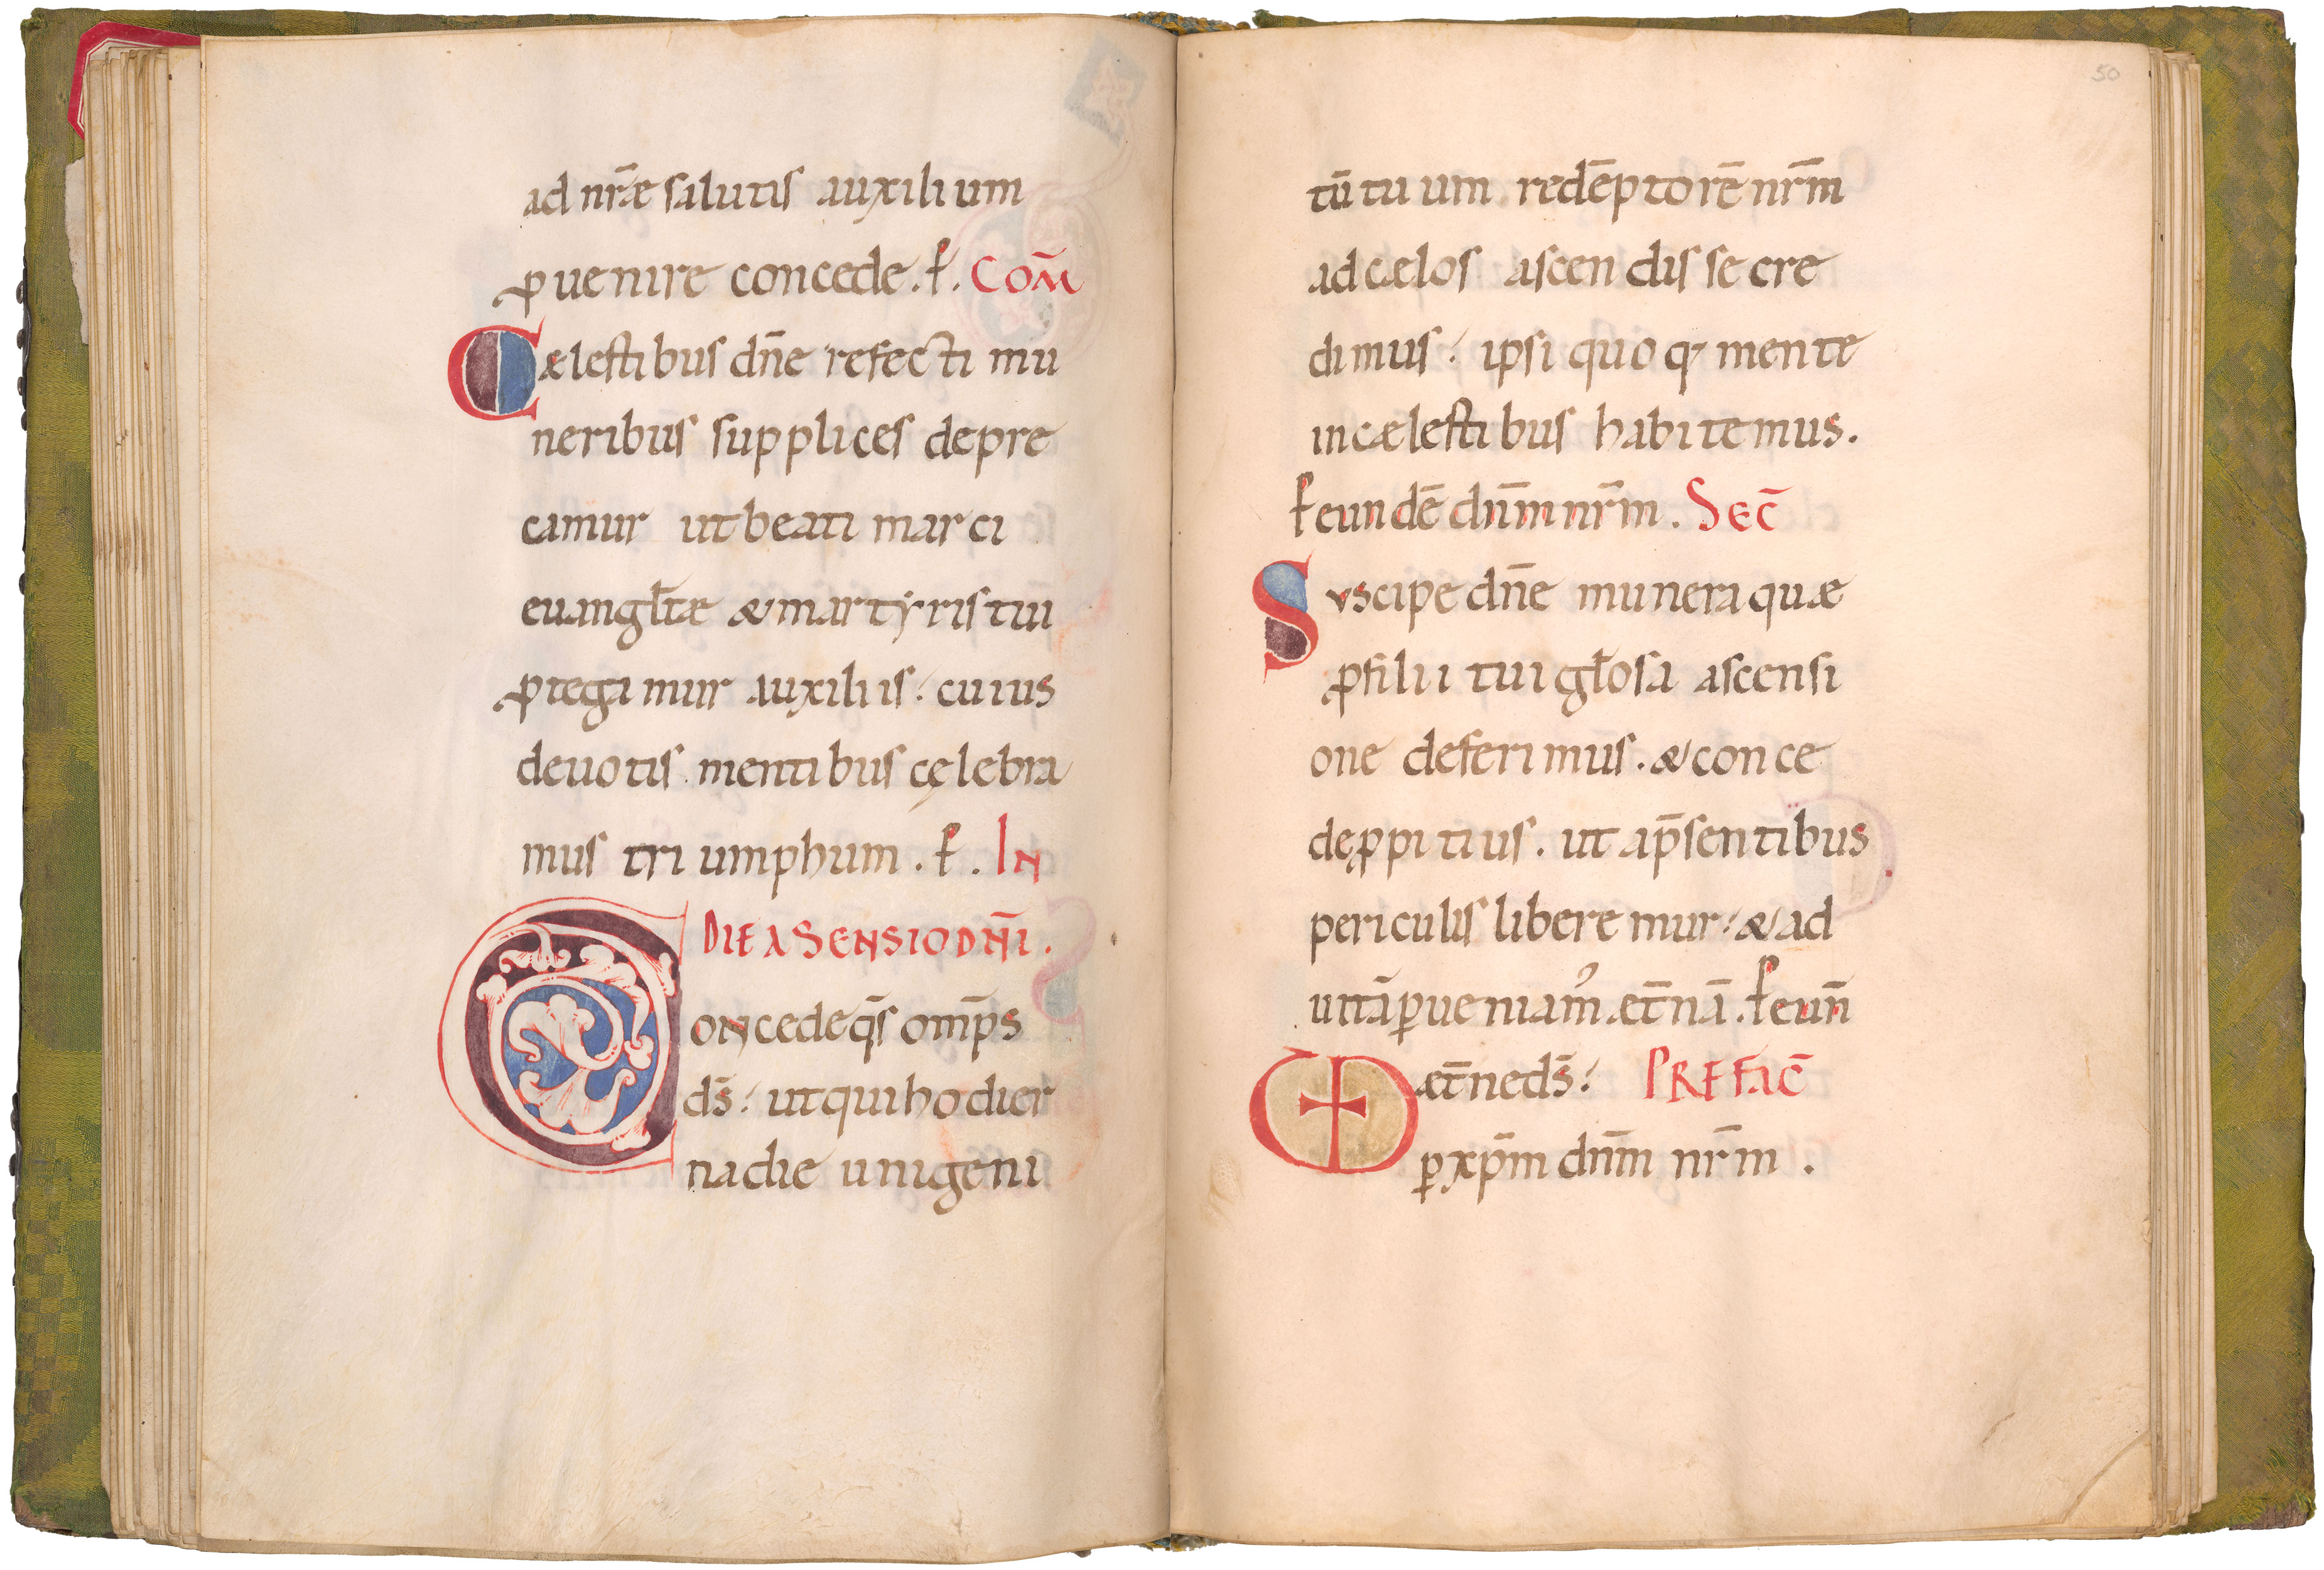 ad nr̄æ salutis auxilium
ꝓuenire concede. ꝑ. COM̄
Cælestibus dn̄e refecti mu
neribus supplices depre
camur ut beati marci
euangl̄tæ & martẏris tui
ꝓtegamur auxiliis. cuius
deuotis mentibus cęlebra
mus triumphum. ꝑ. IN
DIE ASENSIO DN̄I.
Concede qs̄ omp̄s
ds̄. ut qui hodier
na die unigeni
50
tū tuum redēptorē nr̄m
ad cælos ascendisse cre
dimus. ipsi quoq; mente
in cælestibus habitemus.
ꝑ eundē dnm̄ nr̄m. SEC̄
Suscipe dn̄e munera quæ
ꝓ filii tui gl̄osa ascensi
one deferimus. & conce
de ꝓpitius. ut a p̄sentibus
periculis liberemur. & ad
uitā ꝑueniam᾽ æt̄nā. ꝑ eun̄
VD æt̄ne ds̄. PREFAC̄
ꝑ xp̄m dnm̄ nr̄m.